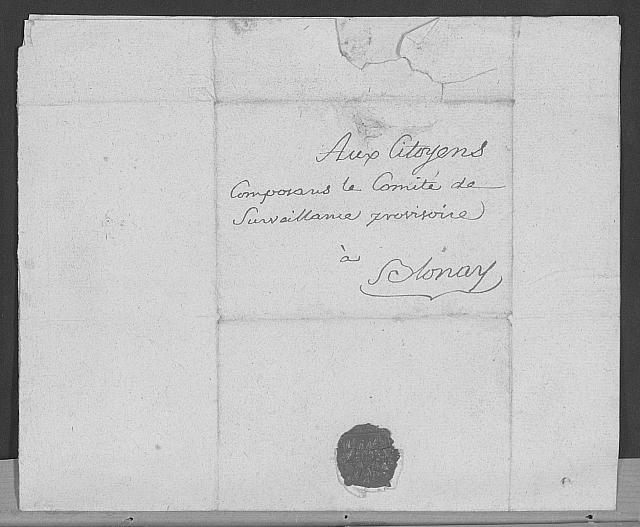 Aux Citoyens
Composans le Comité de
Surveillance provisoire
à
Blonay